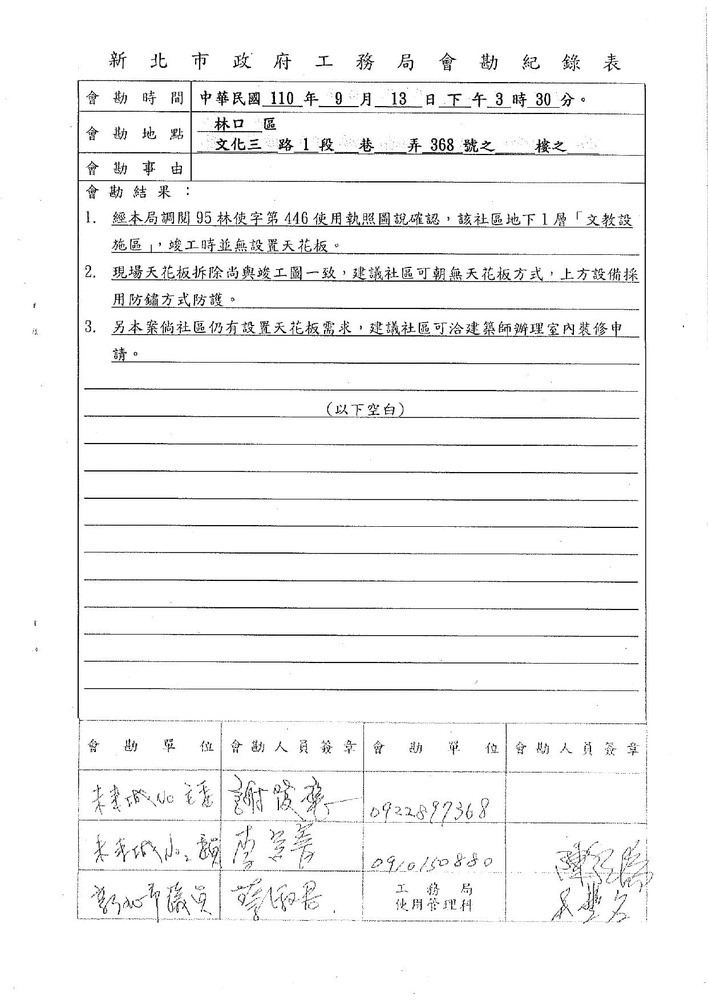 新北市政府工務局會勘紀錄表
會勘時間 中華民國 110 年 9 月 13 日下午 3 時 30 分。
會勘地點 林口 區
文化三 路 1 段 巷 弄 368 號之 樓之
會勘事由
會勘結果：
1. 經本局調閱 95 林使字第 446 使用執照圖說確認，該社區地下 1 層「文教設
施區」，竣工時並無設置天花板。
2. 現場天花板拆除尚與竣工圖一致，建議社區可朝無天花板方式，上方設備採
用防鏽方式防護。
3. 另本案倘社區仍有設置天花板需求，建議社區可洽建築師辦理室內裝修申
請。
(以下空白)
會勘單位 會勘人員簽章 會勘單位 會勘人員簽章
未來城 主委 0922897368
未來城 李 0910150880
新北市議員 蔡淑君 工務局
使用管理科